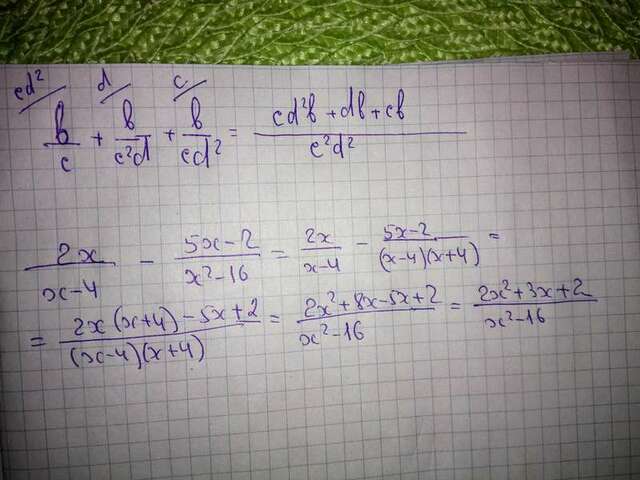 cd²/ d/ c/
b/c + b/c²d + b/cd² = (cd²b + db + cb)/c²d²
2x/(x-4) - (5x-2)/(x²-16) = 2x/(x-4) - (5x-2)/((x-4)(x+4)) =
= (2x(x+4) - 5x+2)/((x-4)(x+4)) = (2x²+8x-5x+2)/(x²-16) = (2x²+3x+2)/(x²-16)